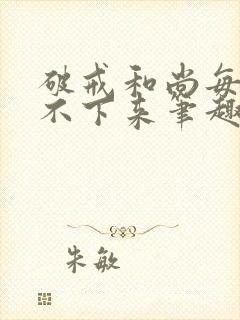 破戒和尚每
不下来笔趣
朱敏